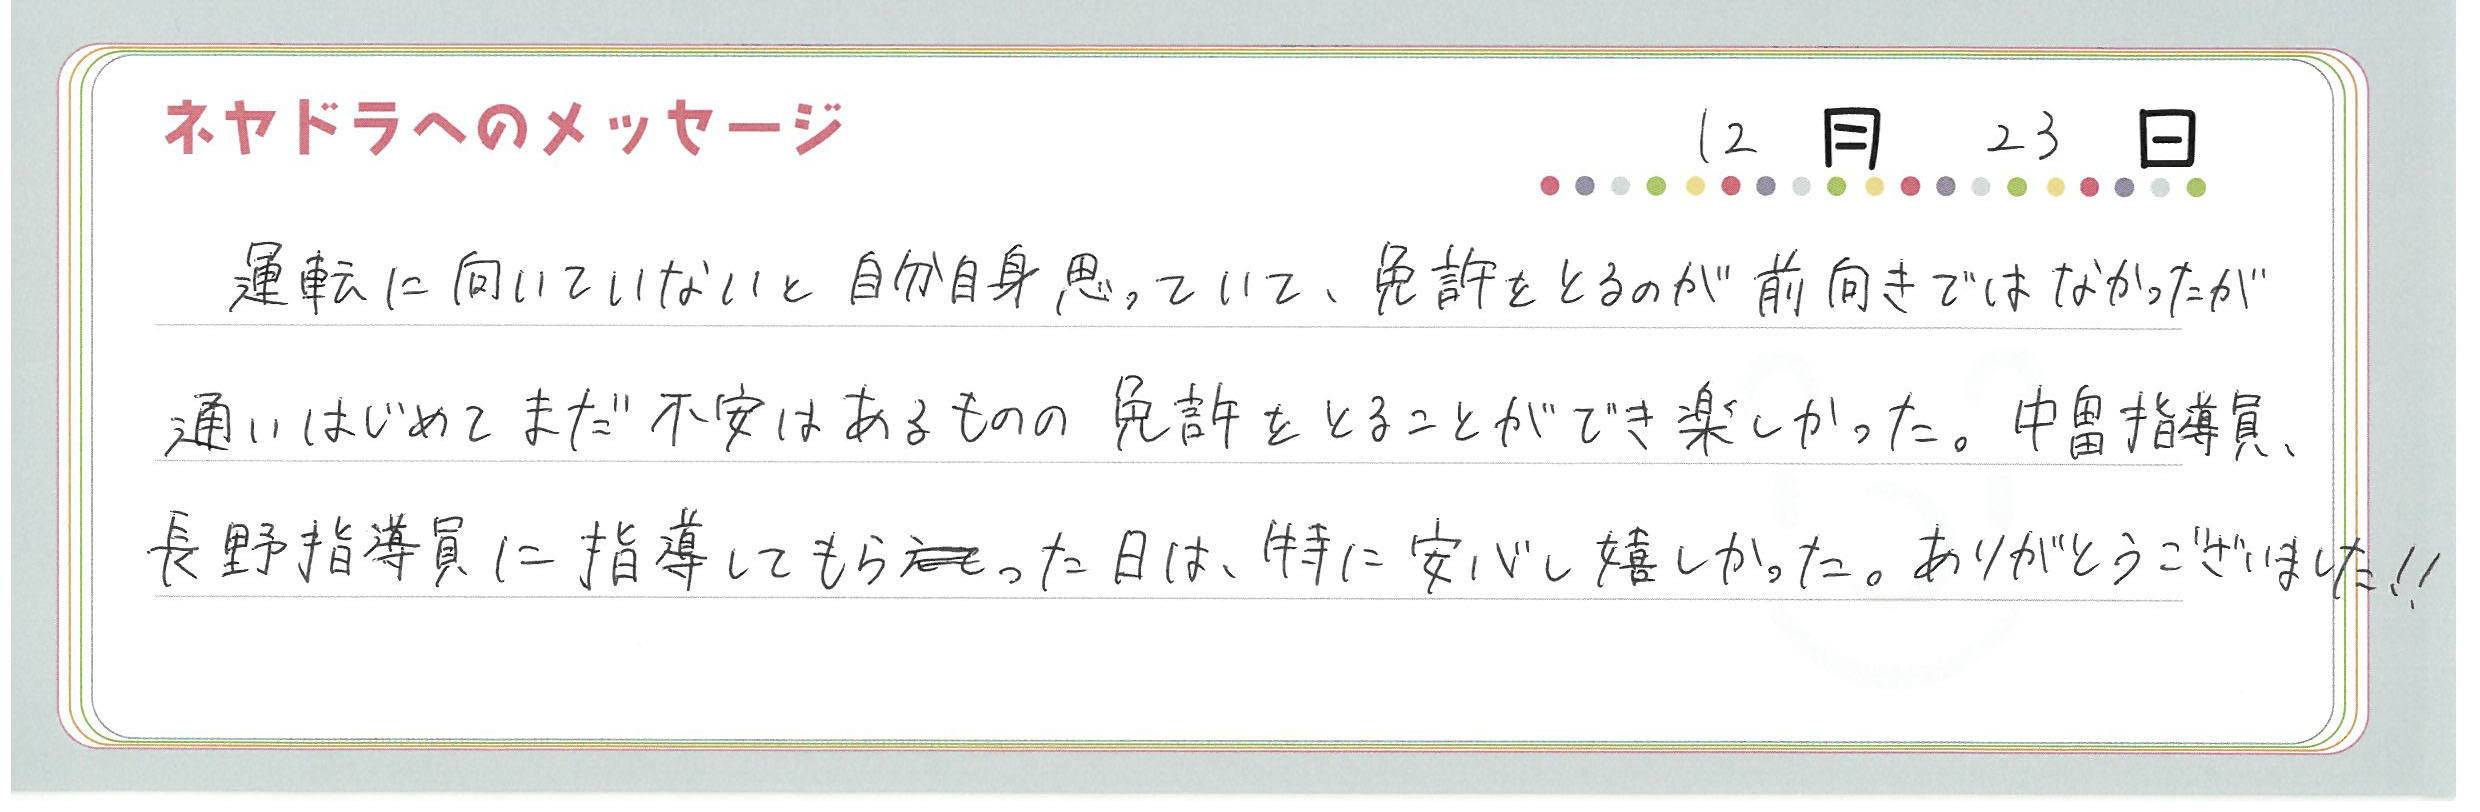 ネヤドラへのメッセージ
12 月 23 日
運転に向いていないと自分自身思っていて、免許をとるのが前向きではなかったが
通いはじめてまだ不安はあるものの免許をとることができ楽しかった。中畄指導員、
長野指導員に指導してもらった日は、特に安心し嬉しかった。ありがとうございました!!